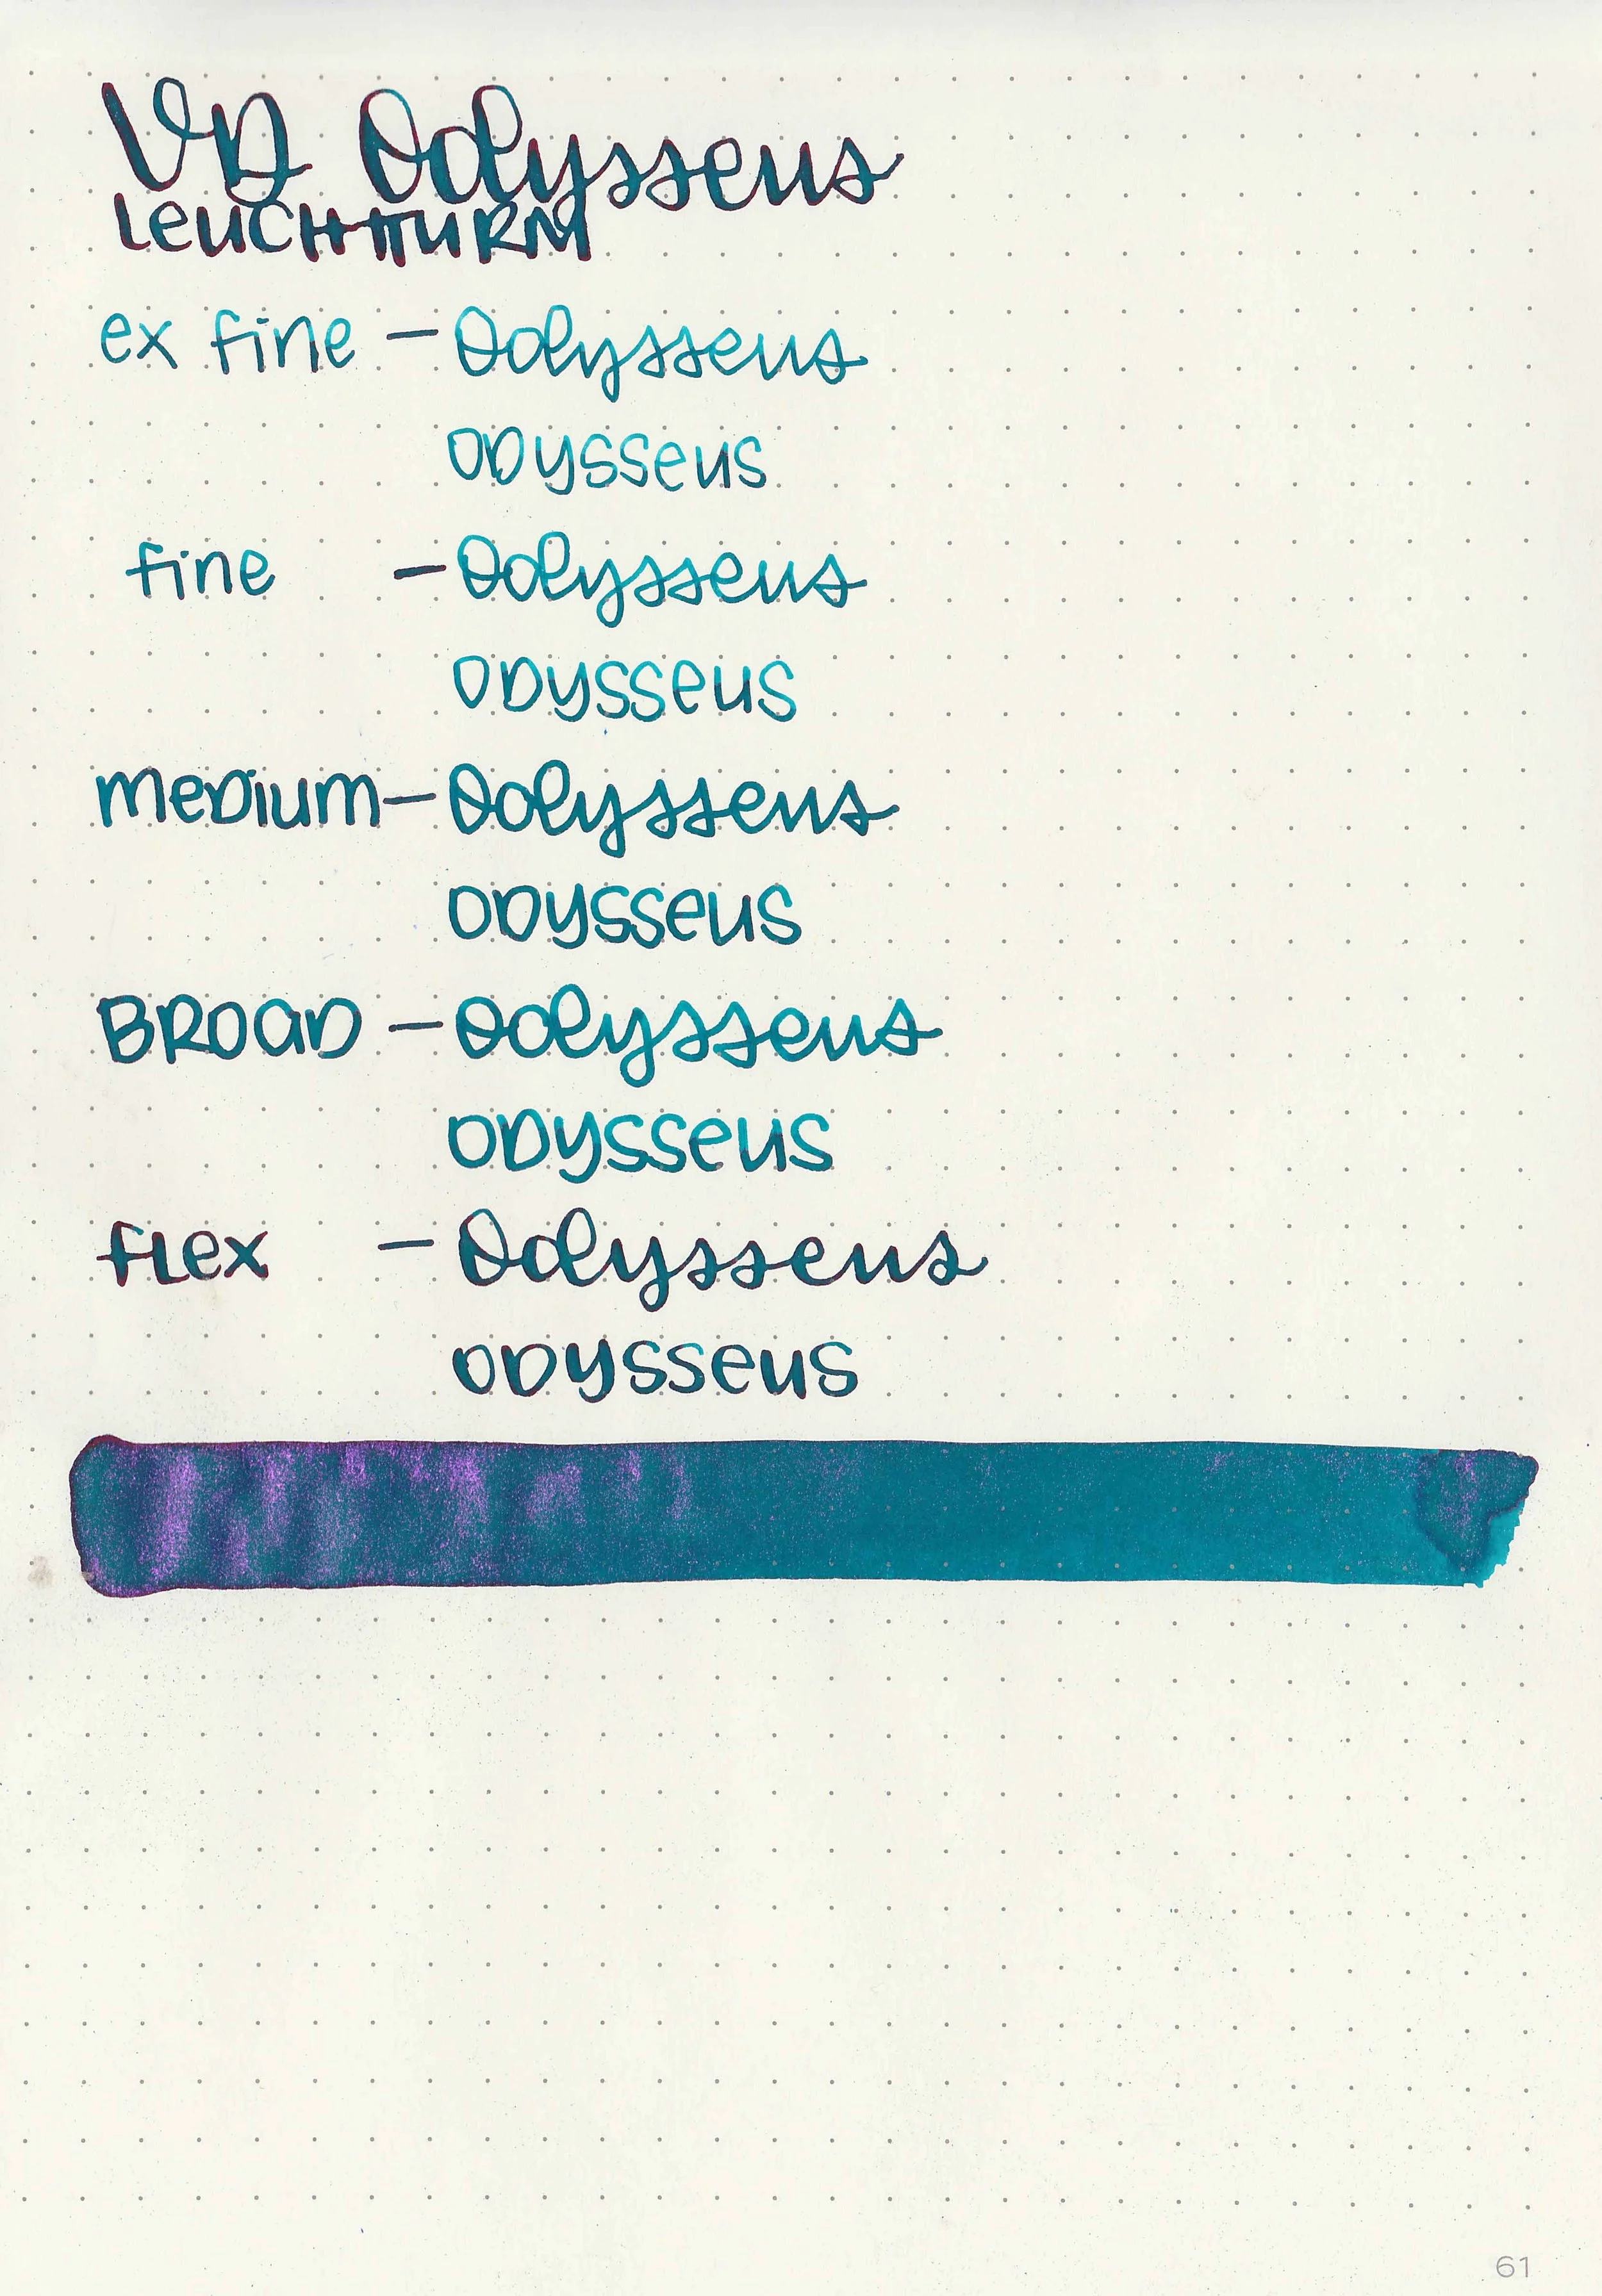 VD Odysseus
Leuchtturm
ex fine — Odysseus
Odysseus
fine — Odysseus
Odysseus
medium — Odysseus
Odysseus
Broad — Odysseus
Odysseus
flex — Odysseus
Odysseus
61